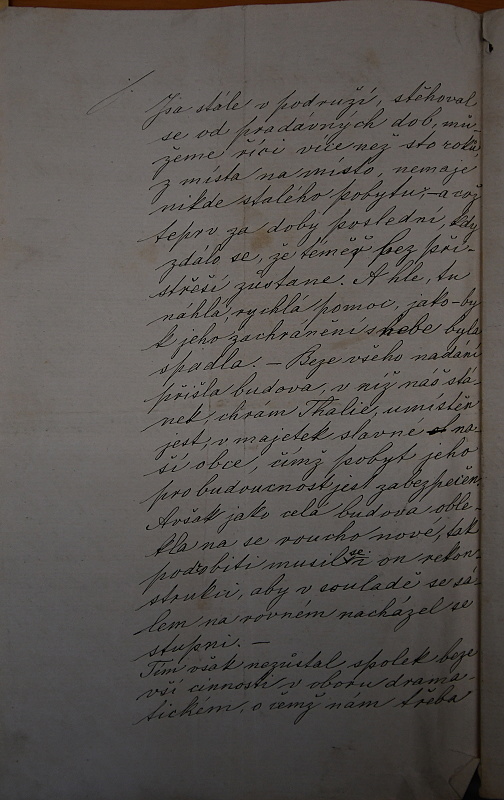 Jsa stále v podruží, stěhoval
se od pradávných dob, mů-
žeme říci více než sto roků
z místa na místo, nemaje
nikde stalého pobytu; – a což
teprv za doby poslední, kdy
zdálo se, že téměř bez pří-
střeší zůstane. A hle, tu
nahlá rychlá pomoc, jako-by
k jeho zachránění s nebe byla
spadla. – Beze všeho nadání
přišla budova, v níž náš stá-
nek, chram Thalie, umístěn
jest, v majetek slavné na-
ší obce, čímž pobyt jeho
pro budoucnost jest zabezpečen.
Avšak jako celá budova oble-
kla na se roucho nové, tak
podrobiti musil se i on rekon-
strukci, aby v souladě se sá-
lem na rovném nacházel se
stupni. –
Tím však nezůstal spolek beze
vší činnosti v oboru drama-
tickém, o čemž nám třeba